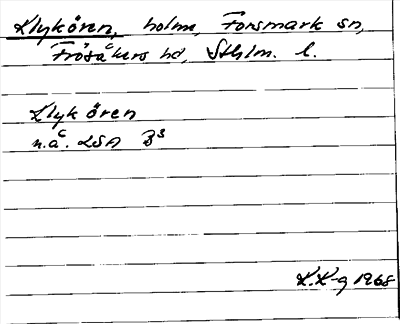 Klykören, holme, Forsmark sn,
Frösåkers hd, Sthlm. l.
Klykören
n.å. LSA B3
K.K-g 1968